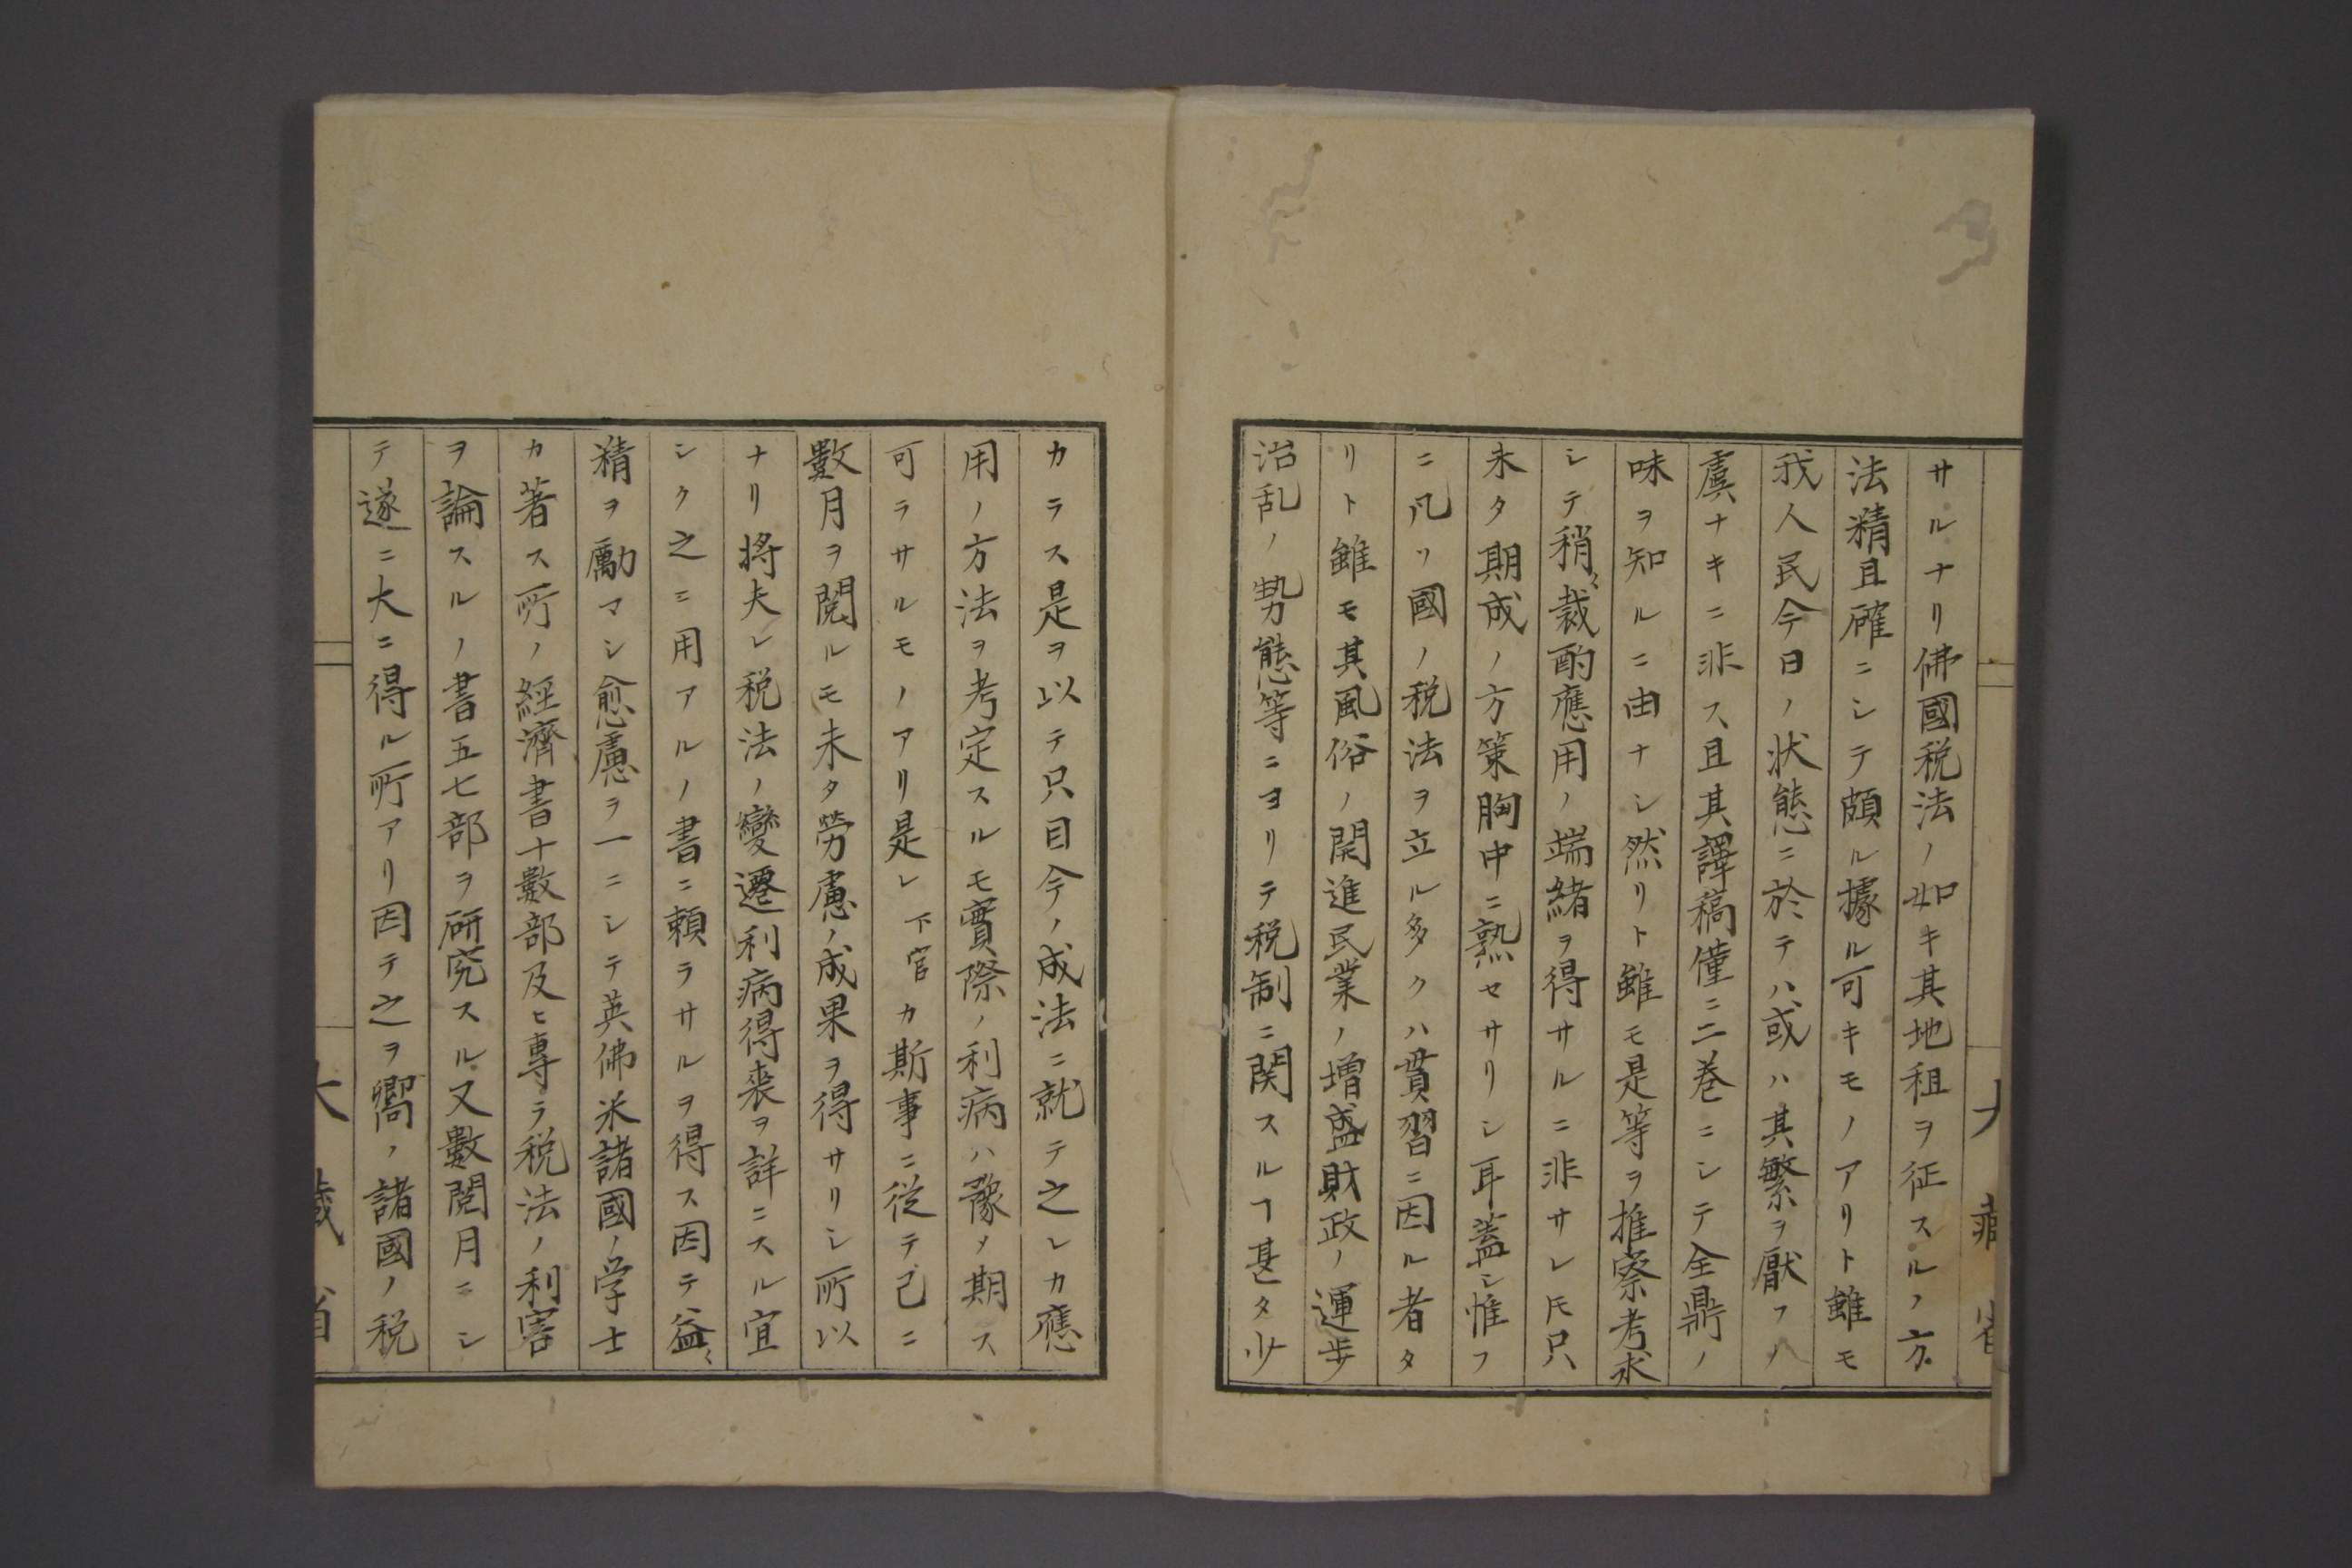 サルナリ佛國税法ノ如キ其地租ヲ征スルノ方
法精且確ニシテ頗ル據ル可キモノアリト雖モ
我人民今日ノ状態ニ於テハ或ハ其繁ヲ厭フノ
虞ナキニ非ス且其譯稿僅ニ二巻ニシテ全鼎ノ
味ヲ知ルニ由ナシ然リト雖モ是等ヲ推察考求
シテ稍〻裁酌應用ノ端緒ヲ得サルニ非サレ𪜈只
未タ期成ノ方策胸中ニ熟セサリシ耳蓋シ惟フ
ニ凡ソ國ノ税法ヲ立ル多クハ貫習ニ因ル者タ
リト雖モ其風俗ノ開進民業ノ増盛財政ノ運歩
治乱ノ勢態等ニヨリテ税制ニ関スルヿ甚タ少
カラス是ヲ以テ只目今ノ成法ニ就テ之レカ應
用ノ方法ヲ考定スルモ實際ノ利病ハ豫メ期ス
可ラサルモノアリ是レ下官カ斯事ニ従テ已ニ
數月ヲ閲ルモ未タ勞慮ノ成果ヲ得サリシ所以
ナリ将夫レ税法ノ變遷利病得喪ヲ詳ニスル宜
シク之ニ用アルノ書ニ頼ラサルヲ得ス因テ益〻
精ヲ勵マシ愈慮ヲ一ニシテ英佛米諸國ノ学士
カ著ス所ノ經濟書十數部及ヒ専ラ税法ノ利害
ヲ論スルノ書五七部ヲ研究スル又數閲月ニシ
テ遂ニ大ニ得ル所アリ因テ之ヲ嚮ノ諸國ノ税
大藏省